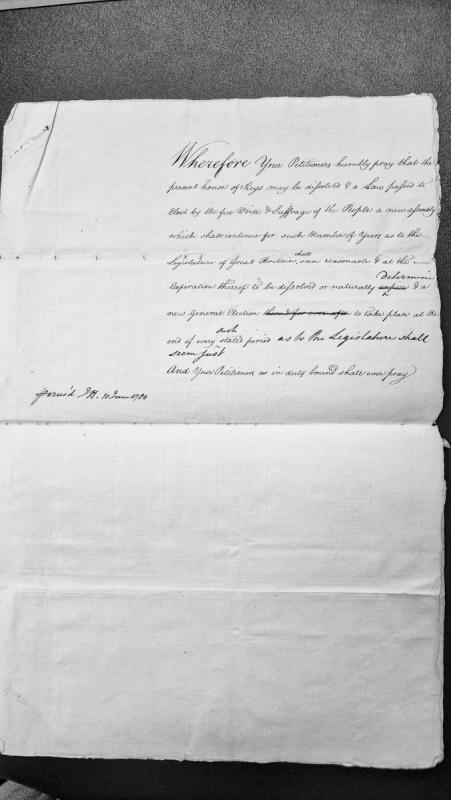 Wherefore Your Petitioners humbly pray that the
present house of Keys may be dissolved & a Law passed to
Elect by the free Voice & Suffrage of the People a new assembly
which shall continue for such Number of Years as to the
Legislature of Great Britain shall seem reasonable & at the
Expiration thereof to be dissolved or naturally expire Determine & a
new General Election then & for ever after to take place at the
end of every such stated period as to the Legislature shall
seem just
And Your Petitioners as in duty bound shall ever pray
Perus'd J H. 10 June 1780